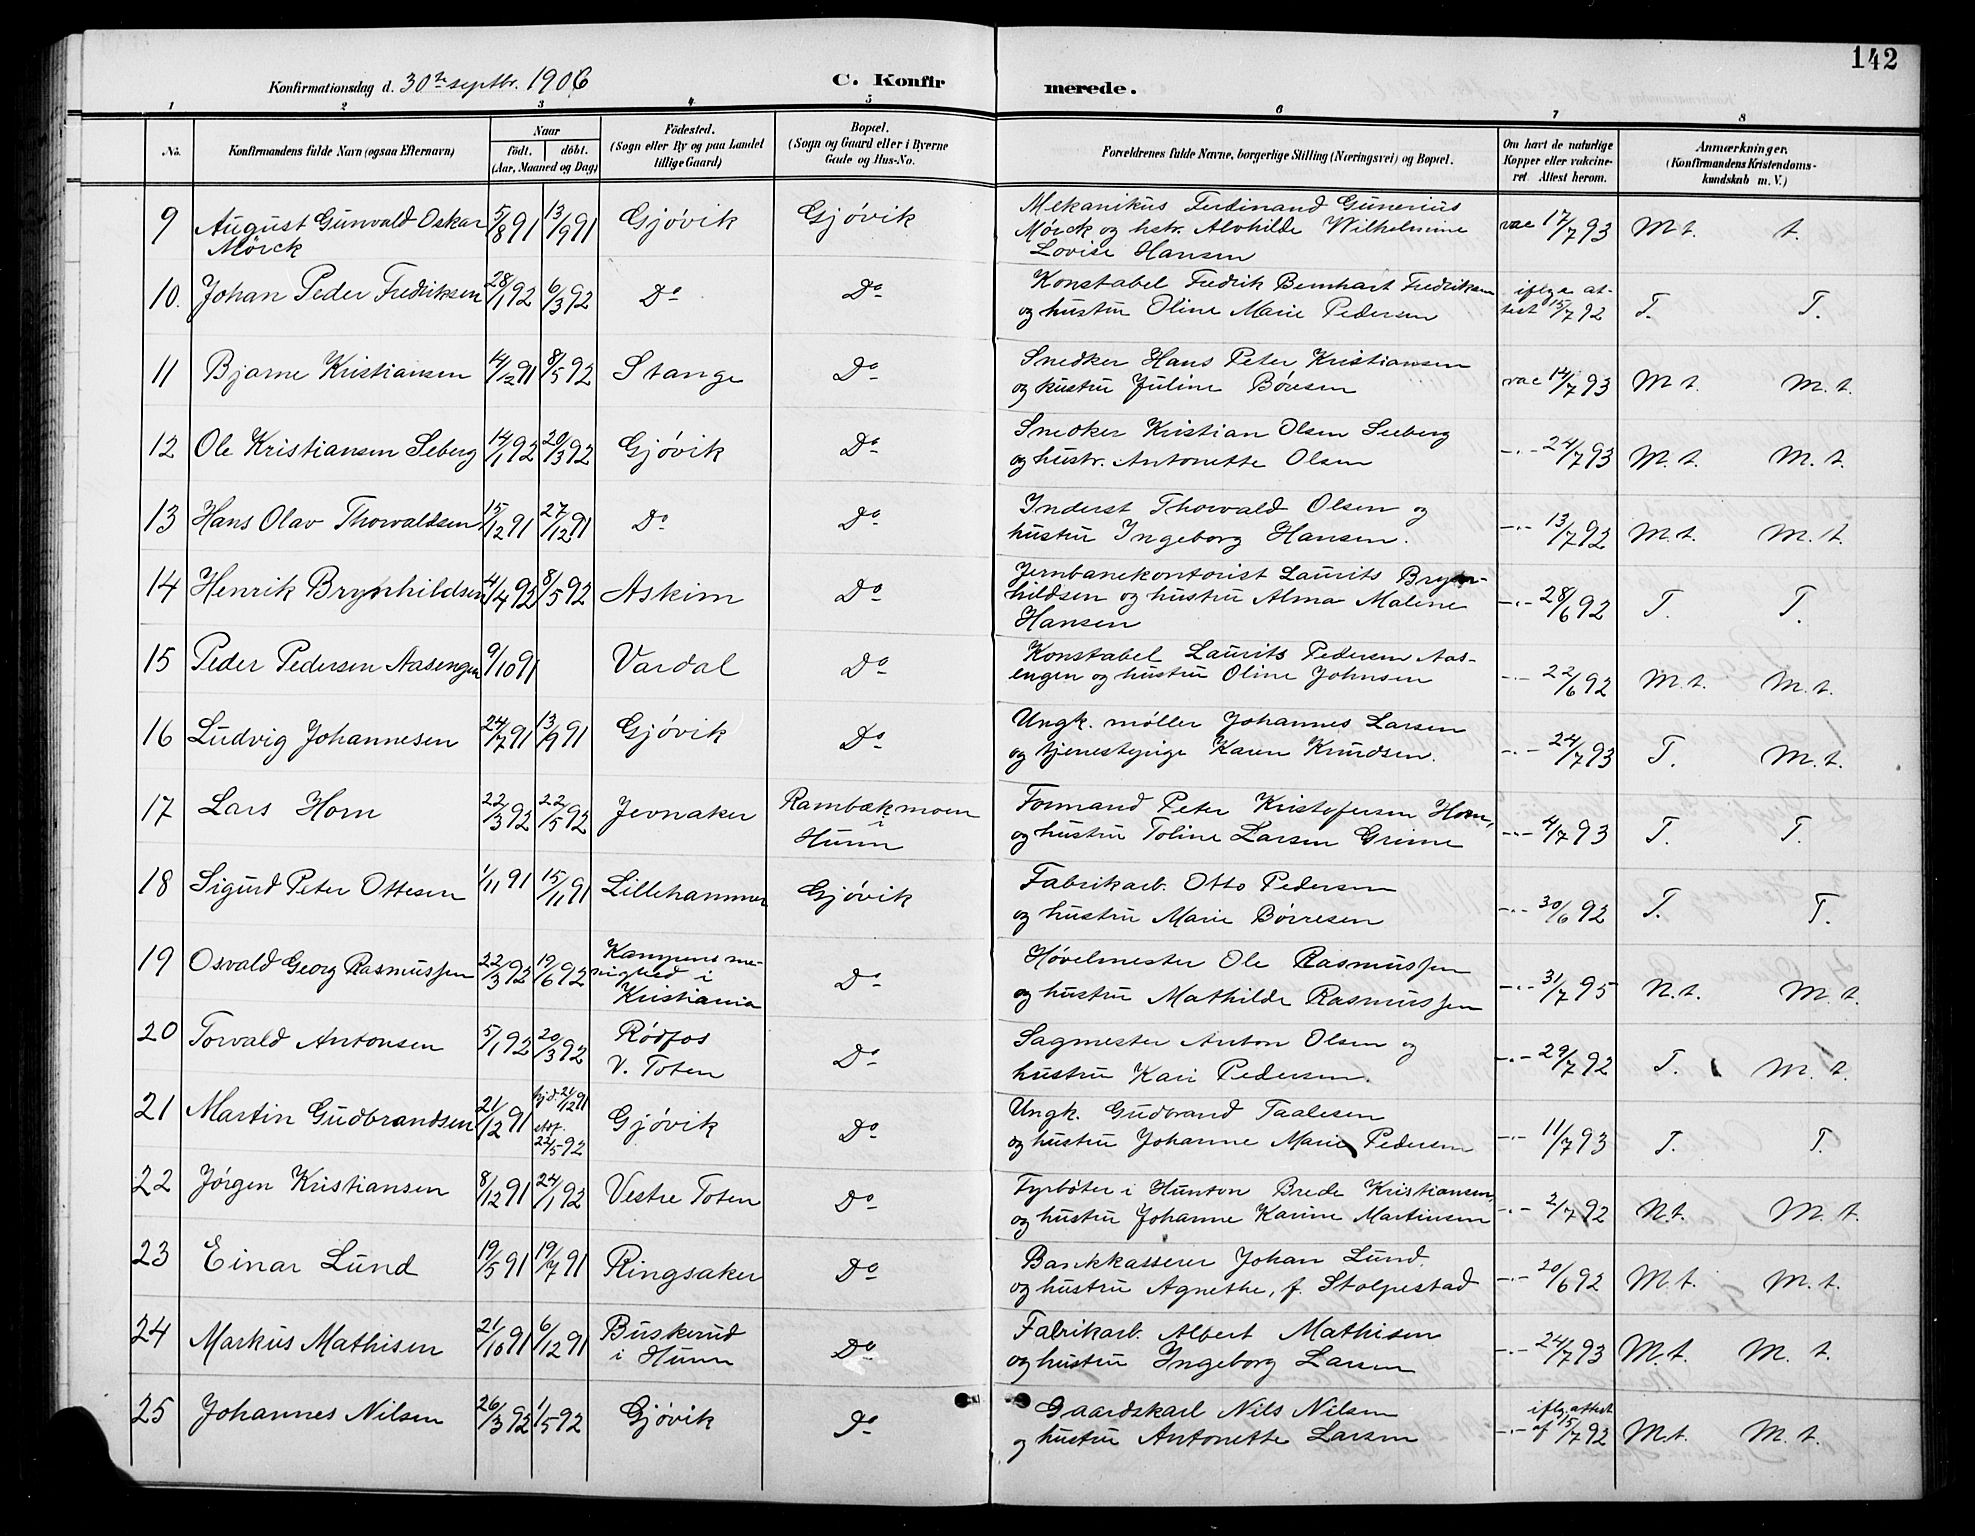 142
Konfirmationsdag d. 30te septbr. 1906
C. Konfirmerede.
1 2 3 4 5 6 7 8
No.
Konfirmandens fulde Navn (ogsaa Efternavn)
Naar
født. døbt.
(Aar, Maaned og Dag)
Fødested.
(Sogn eller By og paa Landet
tillige Gaard)
Bopæl.
(Sogn og Gaard eller i Byerne
Gade og Hus-No.
Forældrenes fulde Navne, borgerlige Stilling (Næringsvei) og Bopæl.
Om havt de naturlige
Kopper eller vakcine-
ret Attest herom.
Anmærkninger.
(Konfirmandens Kristendoms-
kundskab m. V.)
9 August Gunvald Oskar 5/8 91 13/9 91 Gjøvik Gjøvik Mekanikus Ferdinand Gunerius vac 17/7 93 M.t. t.
Mørck Mørck og hstr. Alvhilde Wilhelmine
Lovise Hansen
10. Johan Peder Fredriksen 28/1 92 6/3 92 Do Do Konstabel Fredrik Bernhart Fredriksen iflge at-
og hustru Oline Marie Pedersen test 15/7 92 T. T.
11 Bjarne Kristiansen 14/12 91 8/5 92 Stange Do Snedker Hans Peter Kristiansen
og hustru Juline Børesen vac 14/7 93 M.t. M.t.
12 Ole Kristiansen Seberg 14/1 92 20/3 92 Gjøvik Do Snedker Kristian Olsen Seeberg
og hustr. Antonette Olsen -.- 24/7 93 M.t. M.t.
13 Hans Olav Thorvaldsen 15/12 91 27/12 91 Do Do Inderst Thorvald Olsen og
hustru Ingeborg Hansen. -.- 13/7 92 M.t. M.t.
14 Henrik Brynhildsen 4/4 92 8/5 92 Askim Do Jernbanekontorist Laurits Bryn-
hildsen og hustru Alma Malene -.- 28/6 92 T. T.
Hansen
15 Peder Pedersen Aasengen 9/10 91 Vardal Do Konstabel Laurits Pedersen Aas-
engen og hustru Oline Johnsen -.- 22/6 92 M.t. M.t.
16 Ludvig Johannesen 24/7 91 13/9 91 Gjøvik Do Ungk. møller Johannes Larsen
og tjenestepige Karen Knudsen. -.- 24/7 93 T. M.t.
17 Lars Horn 22/3 92 22/5 92 Jevnaker Rambækmoen Formand Peter Kristofersen Horn,
i Hunn og hustru Toline Larsen Grime -.- 4/7 93 T. T.
18 Sigurd Peter Ottesen 1/11 91 15/11 91 Lillehammer Gjøvik Fabrikarb. Otto Pedersen
og hustru Marie Børresen -.- 30/6 92 T. T.
19 Osvald Georg Rasmussen 22/3 92 19/6 92 Kampens me- Do Høvelmester Ole Rasmussen
nighed i og hustru Mathilde Rasmussen -.- 31/7 95 N.t. M.t.
Kristiania
20 Torvald Antonsen 5/1 92 20/3 92 Rødfos Do Sagmester Anton Olsen og
V. Toten hustru Kari Pedersen. -.- 29/7 92 T. M.t.
21 Martin Gudbrandsen 21/12 91 hjd. 21/12 91 Gjøvik Do Ungk. Gudbrand Taalesen
stdf. 22/5 92 og hustru Johanne Marie Pedersen -.- 11/7 93 T. T.
22 Jørgen Kristiansen 8/12 91 24/1 92 Vestre Toten Do Fyrbøter i Hunton Brede Kristiansen,
og hustru Johanne Karine Martinsen -.- 2/7 92 N.t. M.t.
23 Einar Lund 19/5 91 19/7 91 Ringsaker Do Bankkasserer Johan Lund
og hustru Agnethe, f. Stolpestad -.- 20/6 92 M.t. M.t.
24 Markus Mathisen 21/10 91 6/12 91 Buskerud Do Fabrikarb. Albert Mathisen
i Hunn og hustru Ingeborg Larsen -.- 24/7 93 M.t. M.t.
25 Johannes Nilsen 26/3 92 1/5 92 Gjøvik Do Gaardskarl Nils Nilsen iflg attest
og hustru Antonette Larsen -.- af 15/7 92 M.t. M.t.